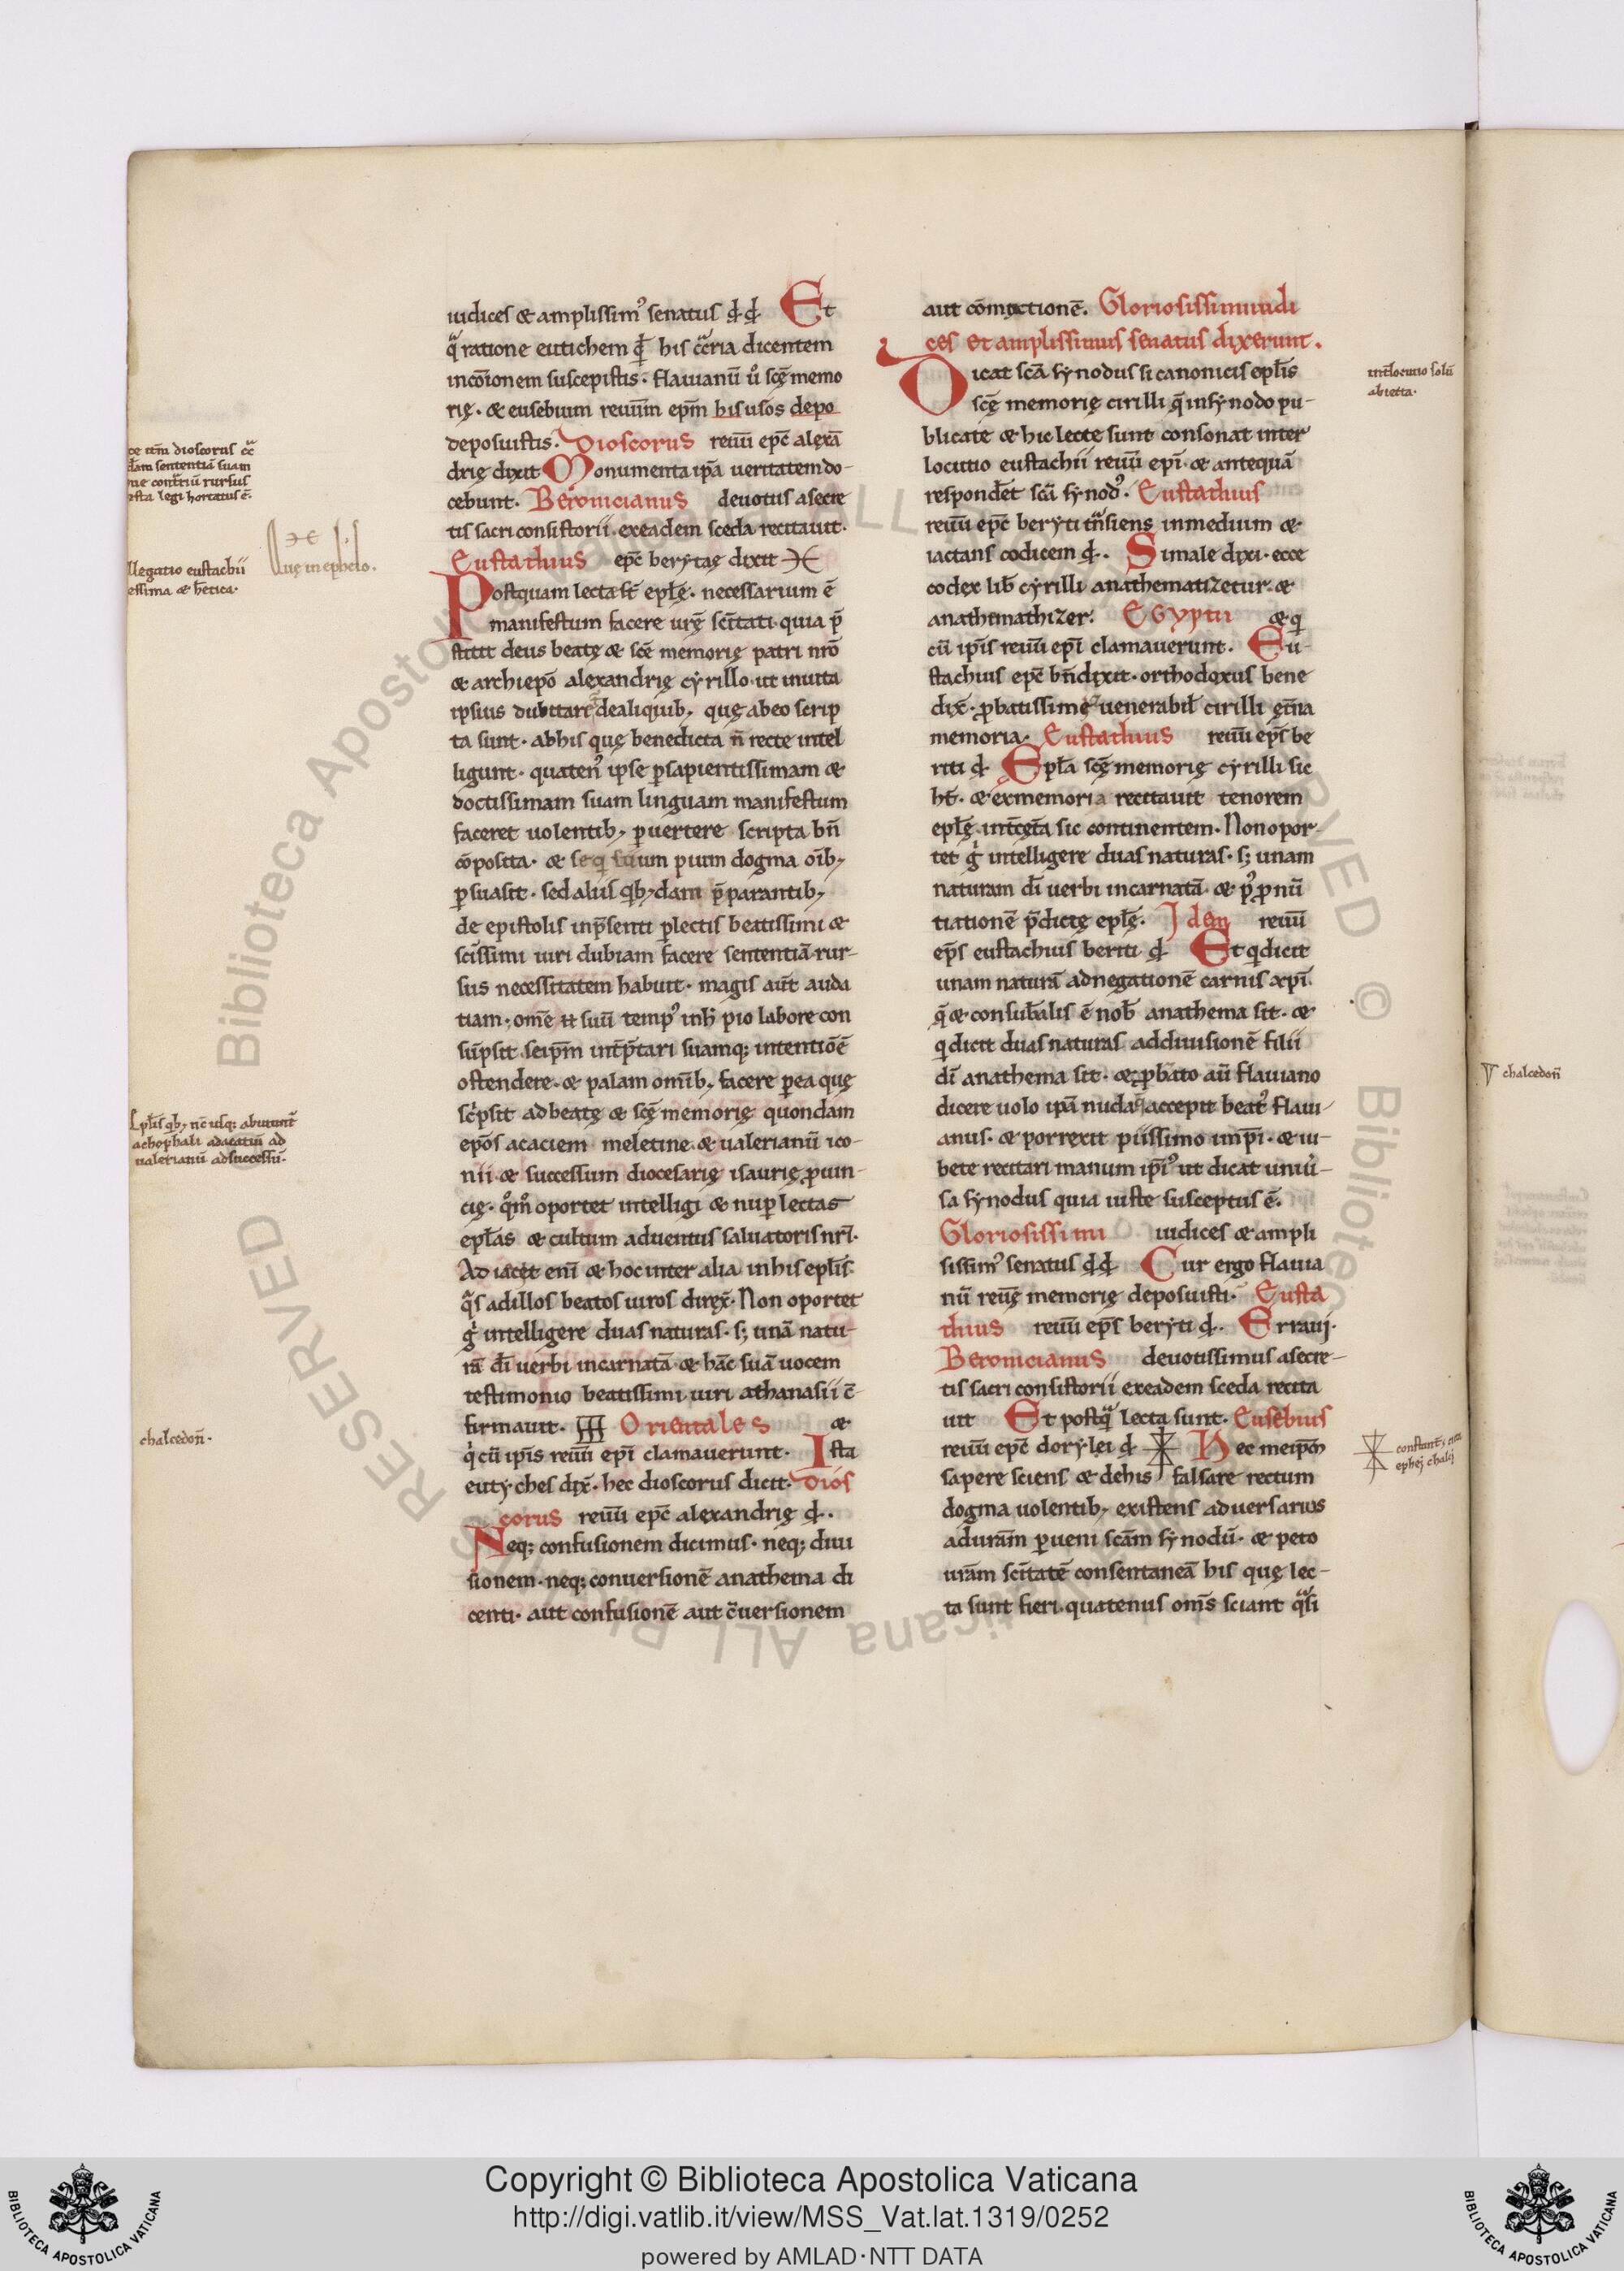 iudices & amplissim᾿ senatus đđ Et
q̃ ratione eutichem đ his c̃c̃ria dicentem
incōionem suscepistis. flauianū u᷎ scę̄ memo
rię. & eusebium reuūm ep̄m his usos depo
deposuistis. Dioscorus reuūi ep̄c alexā
drię dixit Monumenta ip̄a ueritatem do-
cebunt. Beronicianus deuotus a secre
tis sacri consistorii. ex eadem sceda recitauit.
Eustathius ep̄c berytę dixit
Postquam lecta st̄ epl̄ę. necessarium ē
manifestum facere ur̄ę sc̄itati. quia p̄
stitit deus beatę & sc̄ē memorię patri nr̄o
& archiep̄o alexandrię cyrillo. ut inuita
ipsius dubitari de aliquib; quę ab eo scrip
ta sunt. ab his quę benedicta n̄ recte intel
ligunt. quaten᾿ ipse p sapientissimam &
doctissimam suam linguam manifestum
faceret uolentib; puertere scripta bn̄
cōposita. & seq̄ suum pium dogma oīb;
psuasit. sed aliis qb;dam p̄parantib;
de epistolis in p̄senti plectis beatissimi &
sc̄issimi uiri dubiam facere sententiā rur-
sus necessitatem habuit. magis aūt auda
tiam. om̄e suū temp᾿ in h̄ pio labore con
sūpsit. seip̄m int̄p̄tari suamq; intentiōē
ostendere. & palam omīb; facere p ea quę
sc̓psit ad beatę & scę̄ memorię quondam
ep̄os acaciem meletine. & ualerianū ico-
nii. & successum diocesarię isaurię puin-
cię. q᷎m᷎ oportet intelligi & nup lectas
epl̄as & cultum aduentus saluatoris nr̄i.
Adiacet enī & hoc inter alia in his epl̄is
q̃s ad illos beatos uiros direx̄. Non oportet
g̓ intelligere duas naturas. s; unā natu-
rā dī uerbi incarnatā. & hāc suā uocem
testimonio beatissimi uiri athanasii c̄-
firmauit. Orientales &
q̓ cū ip̄is reuūi epī clamauerunt. Ista
eutyches dix̄. hec dioscorus dicit. Dios
corus reuūi ep̄c alexandrię đ.
Neq; confusionem dicimus. neq; diui
sionem. neq; conuersionē anathema di
centi. aut confusionē aut c̄uersionem
aut cōmixtionē. Gloriosissimi iudi
ces et amplissimus senatus dixerunt.
Dicat scā synodus si canonicis epl̄is
scę̄ memorię cirilli q̄ in synodo pu-
blicatę & hic lectę sunt consonat inter
locutio eustachii reuūi epī. & antequā
respondet scā synod᾿. Eustathius
reuūi ep̄c beryti t̃nsiens in medium &
iactans codicem đ. Si male dixi. ecce
codex lib̄ cyrilli anathematizetur. &
anathemathizer. Egyptii & q
cū ip̄is reuūi epī clamauerunt. Eu-
stachius ep̄c bn̄ dixit. orthodoxus bene
dix̄. pbatissime uenerabil̄ cirilli ęt̄na
memoria. Eustathius reuūi ep̄s be
riti đ Epl̄a scę̄ memorię cyrilli sic
ht̄. & ex memoria recitauit tenorem
epl̄ę. int̄cęt̄a sic continentem. Non opor-
tet g̓ intelligere duas naturas. s; unam
naturam dī uerbi incarnatā. & p᾿ pnū
tiationē p̄dictę epl̄ę. Idem reuūi
ep̄s eustachius beriti đ Et q dicit
unam naturā ad negationē carnis xpī.
q̄ & consub̄alis ē nob̄ anathema sit. &
q dicit duas naturas ad diuisionē filii
dī anathema sit. & pbato aū flauiano
dicere uolo ip̄a nuda accepit beat᾿ flaui-
anus. & porrexit piissimo imp̄i. & iu-
bete recitari manum ip̄i᾿ ut dicat uniu᷎-
sa synodus quia iuste susceptus ē.
Gloriosissimi iudices & ampli
sissim᾿ senatus đđ Cur ergo flauia
nū reuę̄ memorię deposuisti. Eusta
thius reuūi ep̄s beryti đ. Erraui.
Beronicianus deuotissimus a secre-
tis sacri consistorii ex eadem sceda recita
uit Et postq̃ lecta sunt. Eusebius
reuūi ep̄c dorylei đ Hec me ip̄m
sapere sciens & de his falsare rectum
dogma uolentib; existens aduersarius
ad ur̄am pueni scām synodū. & peto
ur̄am sc̄itatē consentaneā his quę lec-
ta sunt fieri. quatenus om̄s sciant q̃si
int̄locutio solū
abiecta.
chalcedon̄.
chalcedon̄
Copyright © Biblioteca Apostolica Vaticana
http://digi.vatlib.it/view/MSS_Vat.lat.1319/0252
powered by AMLAD·NTT DATA
BIBLIOTECA APOSTOLICA VATICANA
BIBLIOTECA APOSTOLICA VATICANA